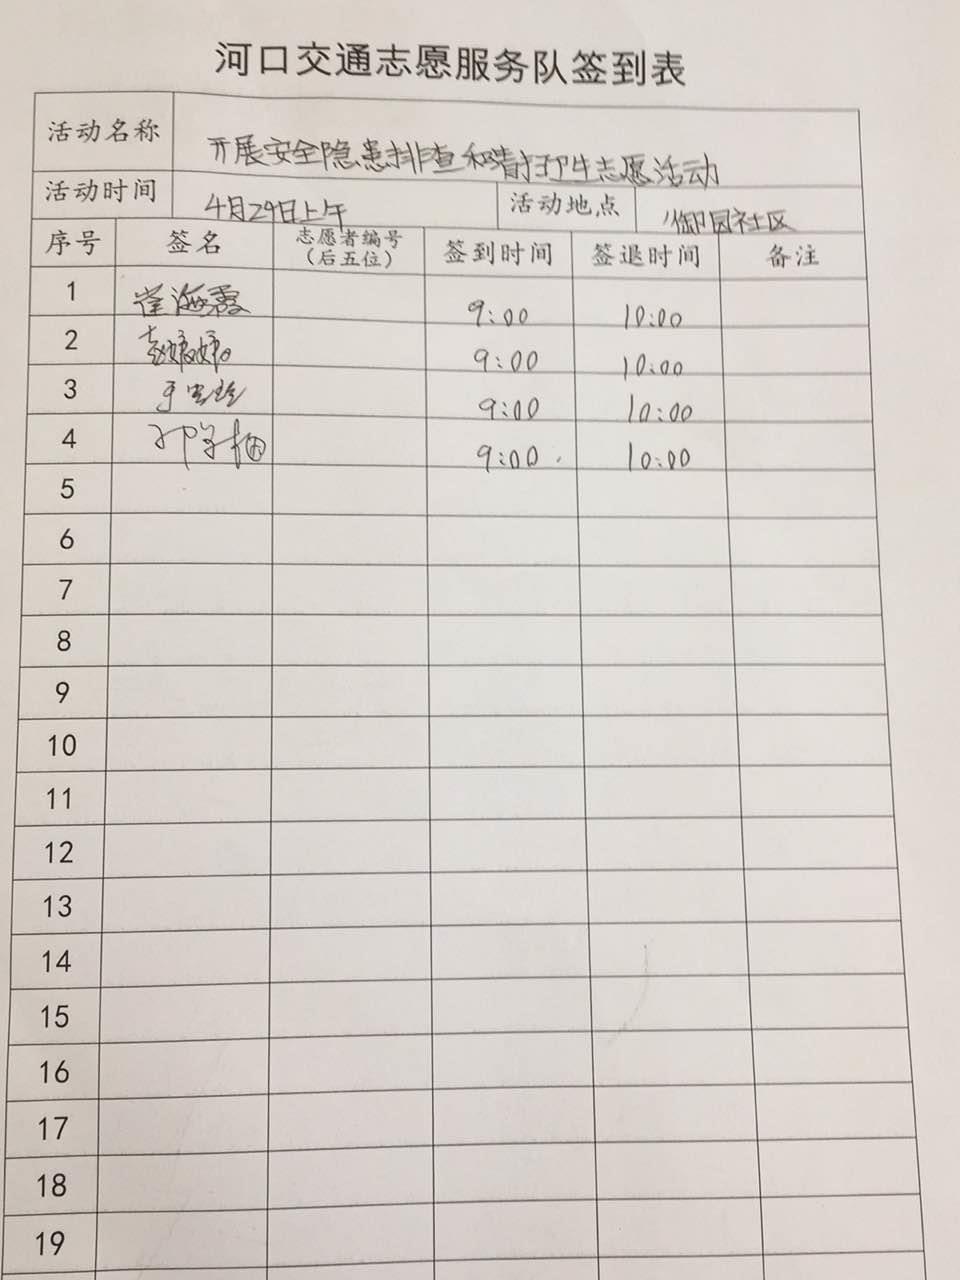 河口交通志愿服务队签到表
活动名称 开展安全隐患排查和清扫卫生志愿活动
活动时间 4月29日上午 活动地点 御园社区
序号 签名 志愿者编号（后五位） 签到时间 签退时间 备注
1 崔海霞 9:00 10:00
2 9:00 10:00
3 9:00 10:00
4 9:00 10:00
5
6
7
8
9
10
11
12
13
14
15
16
17
18
19